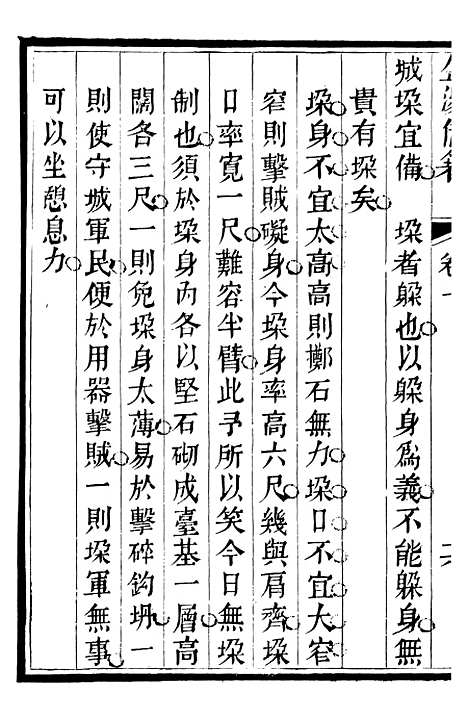 城垛宜備　垛者躱也以躱身爲義不能躱身無
貴有垛矣
垜身不宜太高高則擲石無力垜口不宜大窄
窄則擊賊礙身今垜身率高六尺幾與肩齊垜
口率寬一尺難容半臂此予所以笑今日無垜
制也須於垜身內各以堅石砌成臺基一層高
闊各三尺一則免垜身太薄易於擊碎鈎坍一
則使守城軍民便於用器擊賊一則垜軍無事
可以坐憩息力